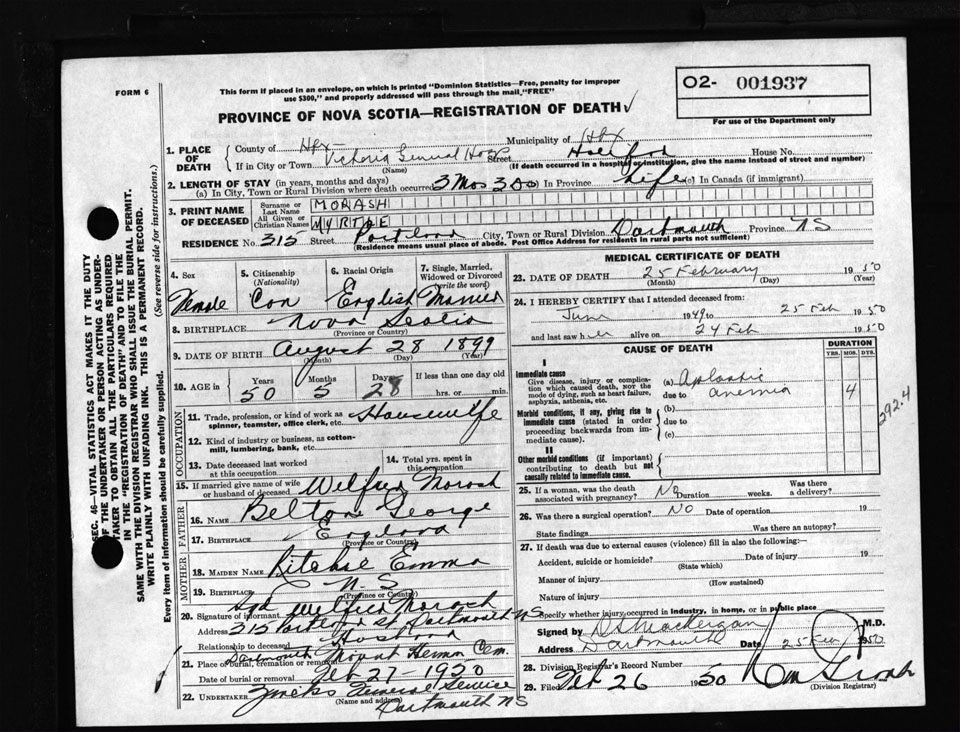 FORM 6
This form if placed in an envelope, on which is printed "Dominion Statistics—Free, penalty for improper
use $300," and properly addressed will pass through the mail "FREE"
O2- 001937
For use of the Department only
PROVINCE OF NOVA SCOTIA—REGISTRATION OF DEATH
1. PLACE OF DEATH
County of Hfx Municipality of Hfx
If in City or Town Victoria General Hosp Street House No.
(Name) (If death occurred in a hospital or institution, give the name instead of street and number)
2. LENGTH OF STAY (in years, months and days)
(a) In City, Town or Rural Division where death occurred 3 Mos 3 Ds (b) In Province Life (c) In Canada (if immigrant)
3. PRINT NAME OF DECEASED
Surname or Last Name MORASH
All Given or Christian Names MYRTLE
RESIDENCE No. 315 Street Portland City, Town or Rural Division Dartmouth Province NS
(Residence means usual place of abode. Post Office Address for residents in rural parts not sufficient)
4. Sex 5. Citizenship (Nationality) 6. Racial Origin 7. Single, Married, Widowed or Divorced (write the word)
Female Can English Married
8. BIRTHPLACE Nova Scotia
(Province or Country)
9. DATE OF BIRTH August 28 1899
(Month) (Day) (Year)
10. AGE in Years Months Days If less than one day old
50 5 28 hrs. or min.
OCCUPATION
11. Trade, profession, or kind of work as spinner, teamster, office clerk, etc. Housewife
12. Kind of industry or business, as cotton-mill, lumbering, bank, etc.
13. Date deceased last worked at this occupation
14. Total yrs. spent in this occupation
15. If married give name of wife or husband of deceased Wilfred Morash
FATHER
16. NAME Belton George
17. BIRTHPLACE England
(Province or Country)
MOTHER
18. MAIDEN NAME Ritchie Emma
19. BIRTHPLACE N.S
(Province or Country)
20. Signature of informant Sgd Wilfred Morash
Address 315 Portland St Dartmouth NS
Relationship to deceased Husband
21. Place of burial, cremation or removal Dartmouth Mount Hermon Cem.
Date of burial or removal Feb 27 - 1950
22. UNDERTAKER Zincks Funeral Service
(Name and address) Dartmouth NS
MEDICAL CERTIFICATE OF DEATH
23. DATE OF DEATH 25 February 1950
(Month) (Day) (Year)
24. I HEREBY CERTIFY that I attended deceased from:
June 1949 to 25 Feb 1950
and last saw her alive on 24 Feb 1950
CAUSE OF DEATH
DURATION
YRS. MOS. DYS.
I
Immediate cause
Give disease, injury or complication which caused death, NOT the mode of dying, such as heart failure, asphyxia, asthenia, etc.
(a) Aplastic
due to anemia 4
292.4
Morbid conditions, if any, giving rise to immediate cause (stated in order proceeding backwards from immediate cause).
(b)
due to
(c)
II
Other morbid conditions (if important) contributing to death but not causally related to immediate cause.
25. If a woman, was the death associated with pregnancy? No Duration weeks. Was there a delivery?
26. Was there a surgical operation? No Date of operation 19
State findings Was there an autopsy?
27. If death was due to external causes (violence) fill in also the following:
Accident, suicide or homicide? Date of injury 19
(State which)
Manner of injury
(How sustained)
Nature of injury
Specify whether injury occurred in industry, in home, or in public place
Signed by M.D.
Address Dartmouth Date 25 Feb 1950
28. Division Registrar's Record Number
29. Filed Feb 26 1950
(Division Registrar)
SEC. 46—VITAL STATISTICS ACT MAKES IT THE DUTY
OF THE UNDERTAKER OR PERSON ACTING AS UNDER-
TAKER TO OBTAIN ALL THE PARTICULARS REQUIRED
IN THE "REGISTRATION OF DEATH" AND TO FILE THE
SAME WITH THE DIVISION REGISTRAR WHO SHALL ISSUE THE BURIAL PERMIT.
WRITE PLAINLY WITH UNFADING INK. THIS IS A PERMANENT RECORD.
Every item of information should be carefully supplied. (See reverse side for instructions.)